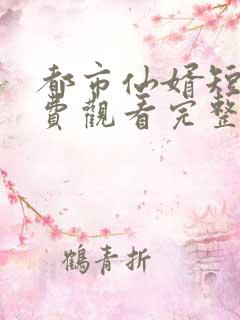 都市仙婿短
費觀看完整
鶴青折